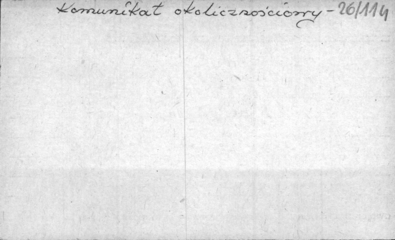 Komunikat okolicznościowy - 26/114